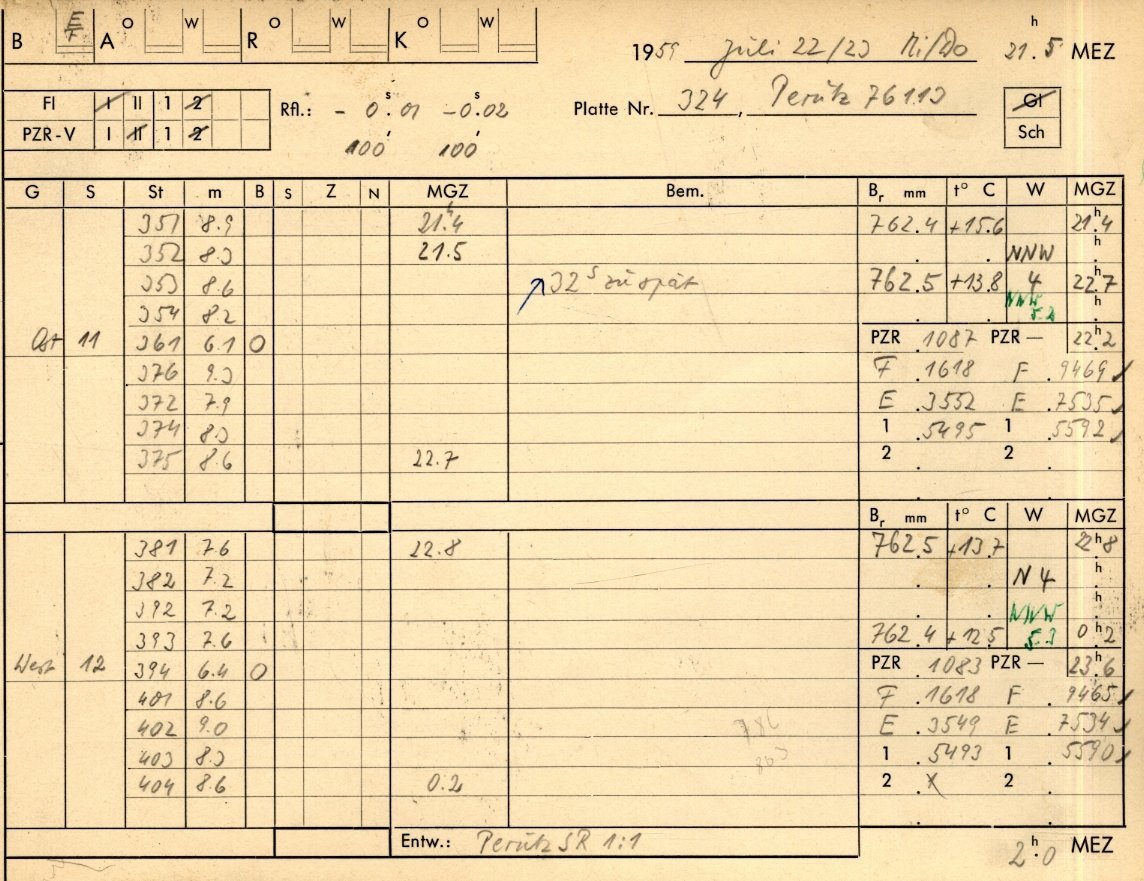 B E/F A O W R O W K O W
1959 Juli 22/23 Mi/Do 21h.5 MEZ
Fl I II 1 2 Rfl.: - 0s.01 -0s.02 Platte Nr. 324, Perutz 76113 Gl
PZR-V I II 1 2 100' 100' Sch
G S St m B S Z N MGZ Bem. Br mm t° C W MGZ
351 8.9 21h.4 762.4 +15.6 21h.4
352 8.3 21.5 . . NNW h.
353 8.6 ↗32s zu spät 762.5 +13.8 4 22h.7
354 8.2 NNW 5.2 h.
Ost 11 361 6.1 O PZR .1087 PZR — 22h.2
376 9.3 F .1618 F .9469
372 7.9 E .3552 E .7535
374 8.3 1 .5495 1 .5592
375 8.6 22.7 2 . 2 .
Br mm t° C W MGZ
381 7.6 22.8 762.5 +13.7 22h.8
382 7.2 . . N 4 h.
392 7.2 . . NNW h.
393 7.6 762.4 +12.5 5.3 0h.2
West 12 394 6.4 O PZR .1083 PZR — 23h.6
401 8.6 F .1618 F .9465
402 9.0 E .3549 E .7534
403 8.3 1 .5493 1 .5590
404 8.6 0.2 2 . x 2 .
Entw.: Perutz SR 1:1
2h.0 MEZ